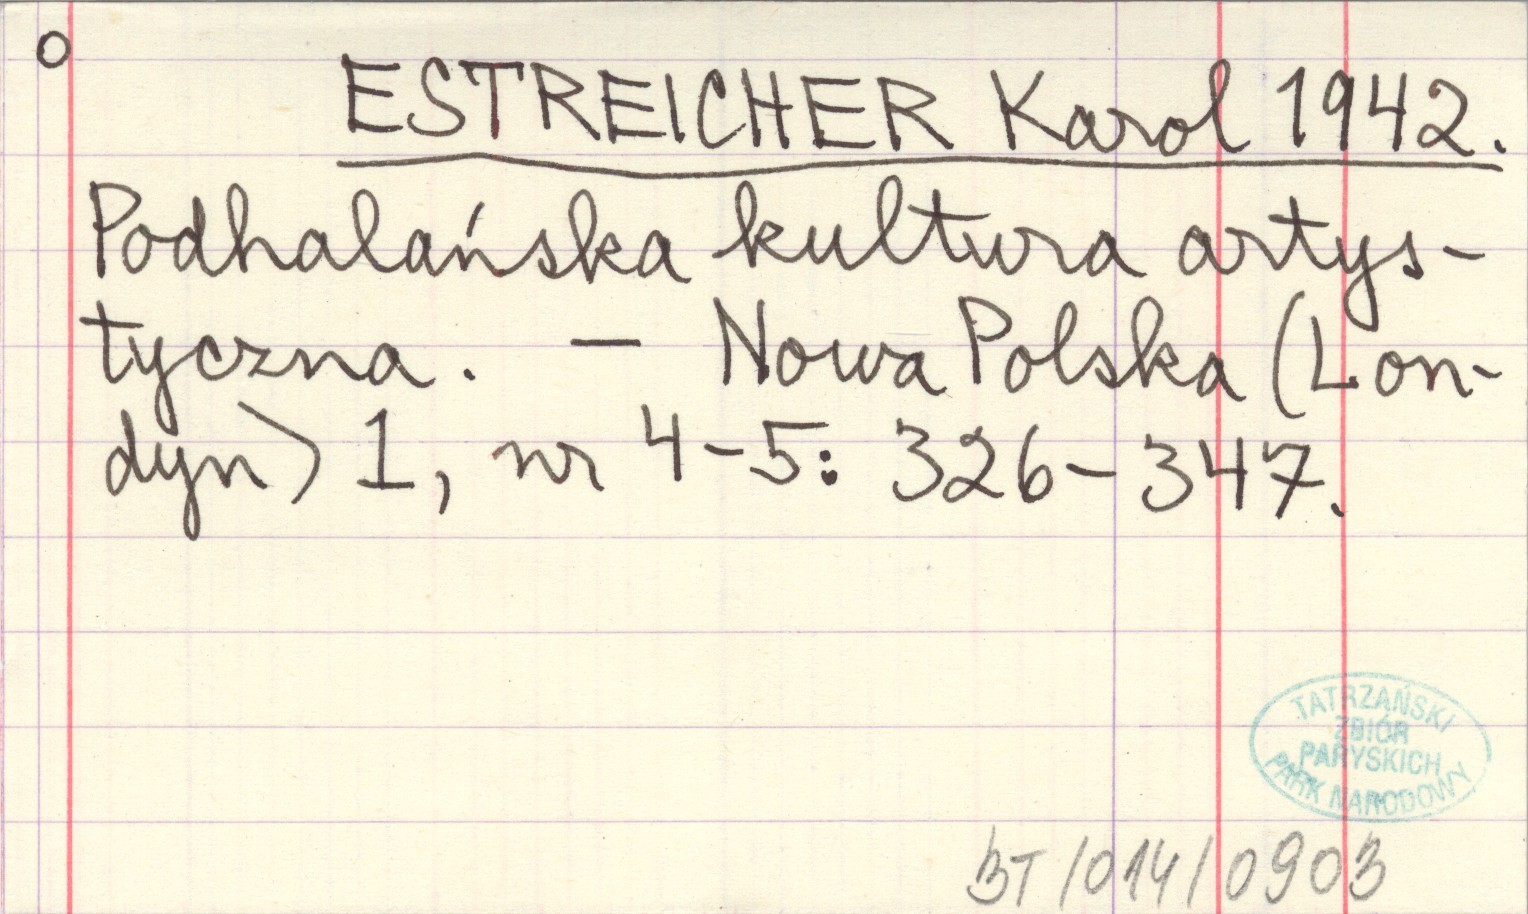 o
ESTREICHER Karol 1942.
Podhalańska kultura artys-
tyczna. – Nowa Polska (Lon-
dyn) 1, nr 4-5: 326-347.
TATRZAŃSKI
ZBIÓR
PARYSKICH
PARK NARODOWY
BT/014/0903